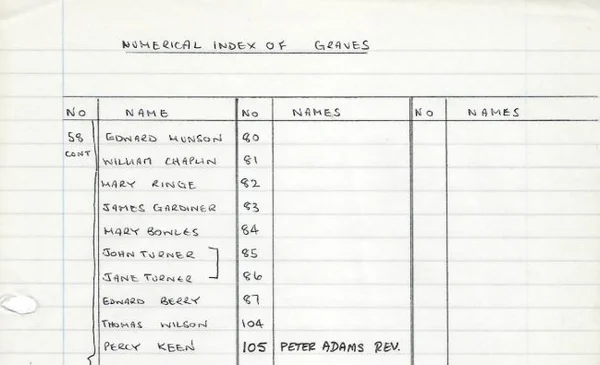 NUMERICAL INDEX OF GRAVES
NO NAME NO NAMES NO NAMES
58 EDWARD MUNSON 80
CONT WILLIAM CHAPLIN 81
MARY RINGE 82
JAMES GARDINER 83
MARY BOWLES 84
JOHN TURNER 85
JANE TURNER 86
EDWARD BERRY 87
THOMAS WILSON 104
PERCY KEEN 105 PETER ADAMS REV.